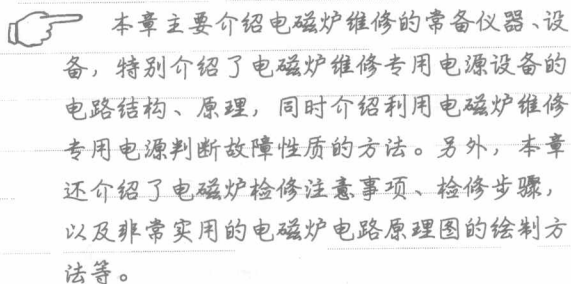 本章主要介绍电磁炉维修的常备仪器、设
备，特别介绍了电磁炉维修专用电源设备的
电路结构、原理，同时介绍利用电磁炉维修
专用电源判断故障性质的方法。另外，本章
还介绍了电磁炉检修注意事项、检修步骤，
以及非常实用的电磁炉电路原理图的绘制方
法等。